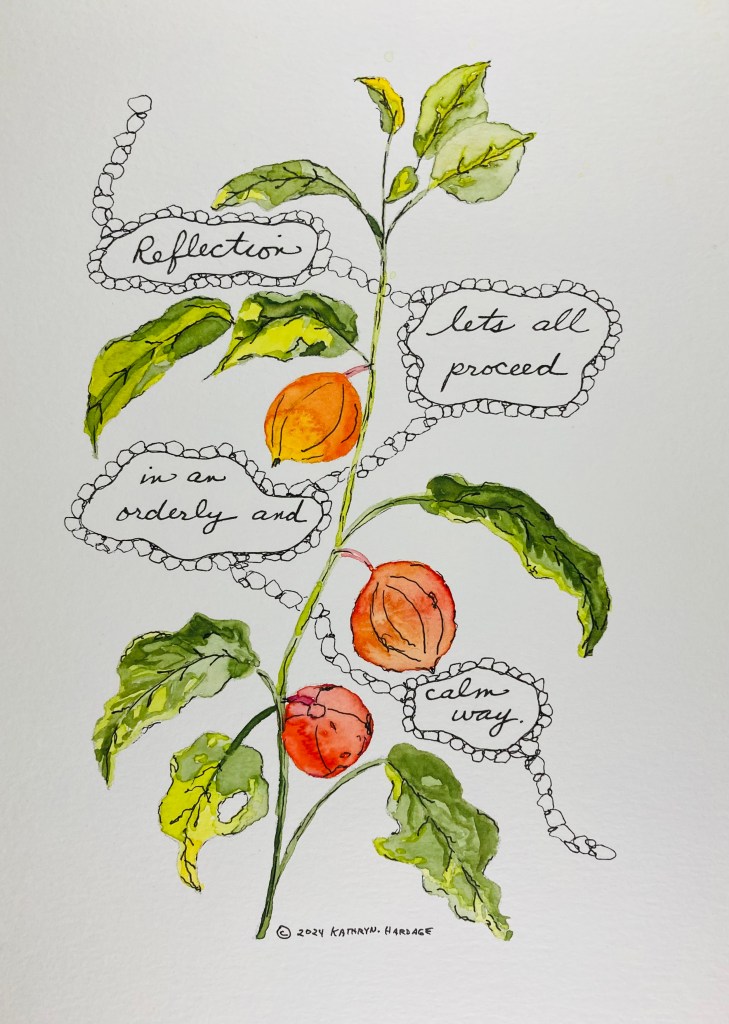 Reflection
lets all
proceed
in an
orderly and
calm
way.
© 2024 KATHRYN. HARDAGE